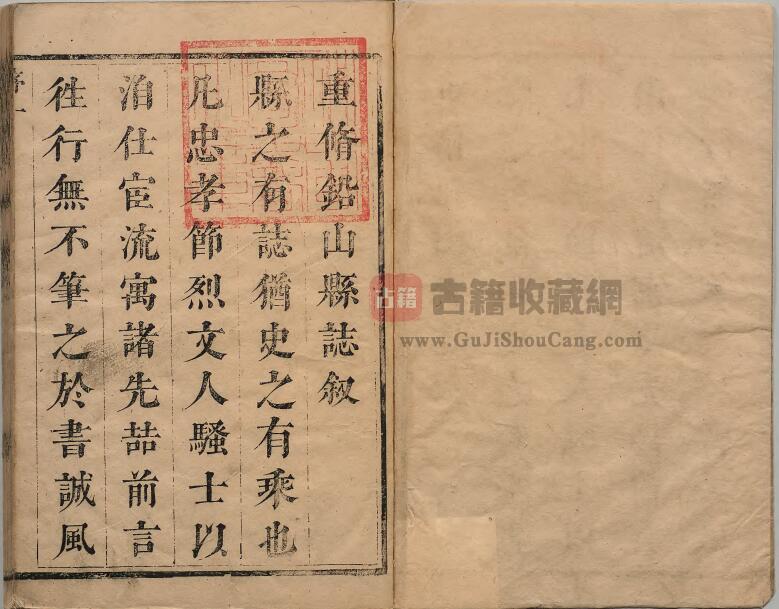 重脩鉛山縣誌叙
縣之有誌猶史之有乘也
凡忠孝節烈文人騷士以
洎仕宦流寓諸先喆前言
徃行無不筆之於書誠風
古籍
古籍收藏網
www.GuJiShouCang.com